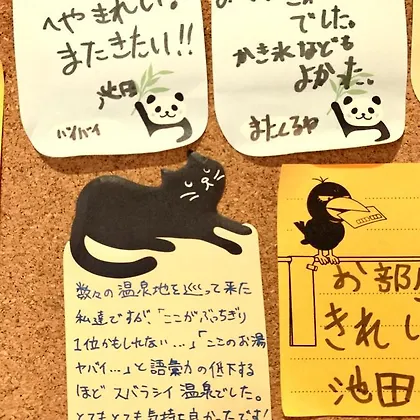 へやきれい。
またきたい!!
池田
ハイバイ
でした。
かき氷なども
よかった。
またくるね
数々の温泉地を巡って来た
私達ですが、「ここがぶっちぎり
1位かもしれない…」「ここのお湯
ヤバイ…」と語彙力の低下する
ほどスバラシイ温泉でした。
とてもとても気持ち良かったです!
お部屋
きれい
池田